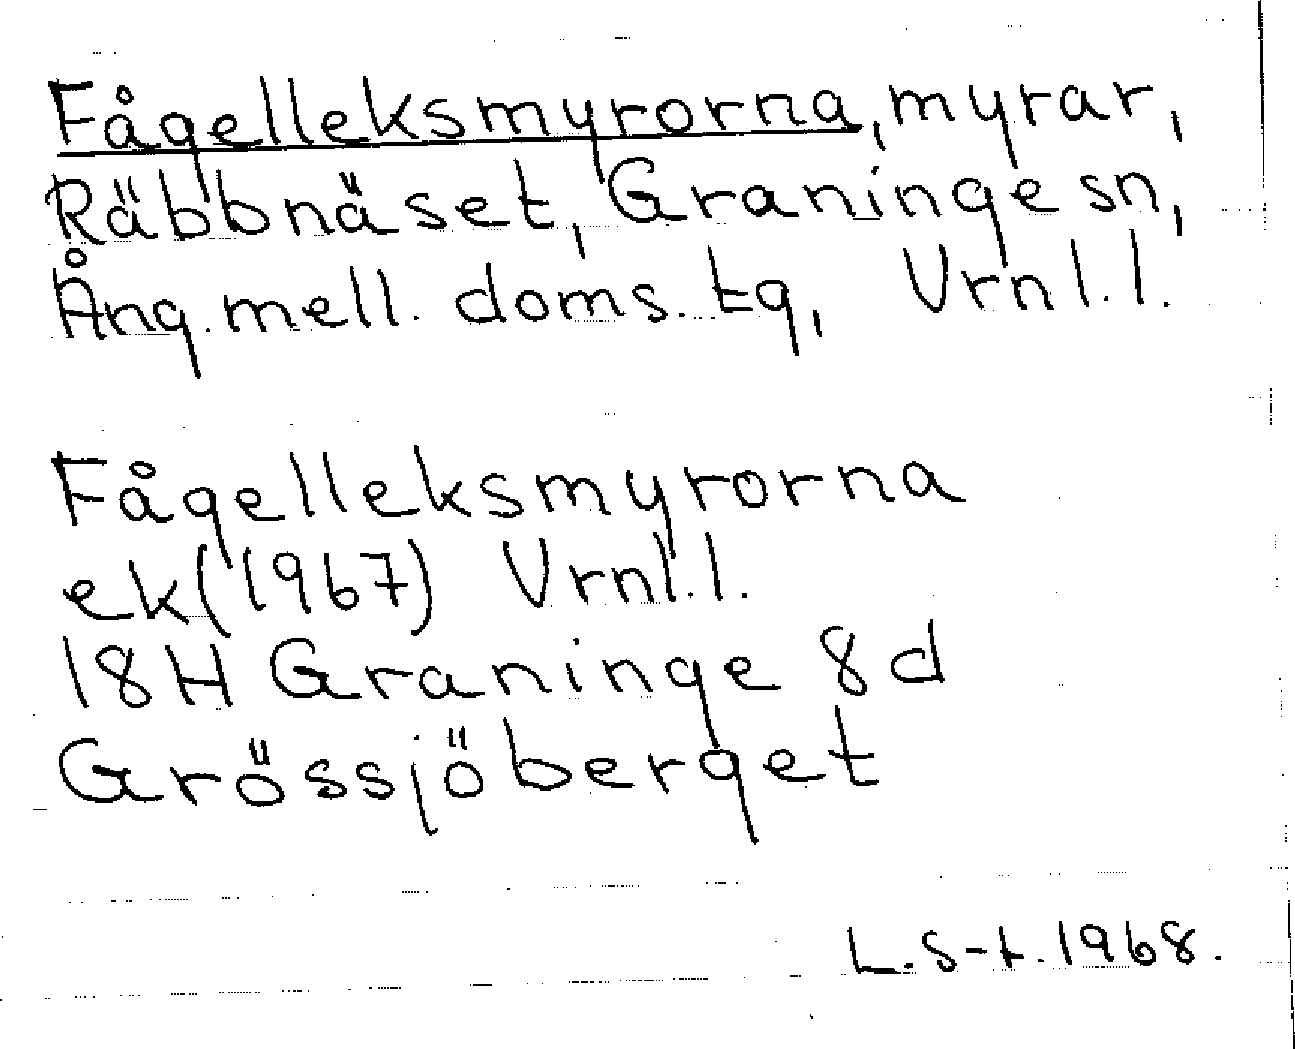 Fågelleksmyrorna, myrar,
Räbbnäset, Graninge sn,
Ång. mell. doms. tg, Vrnl. l.
Fågelleksmyrorna
ek (1967) Vrnl. l.
18H Graninge 8d
Grössjöberget
L. S-t. 1968.